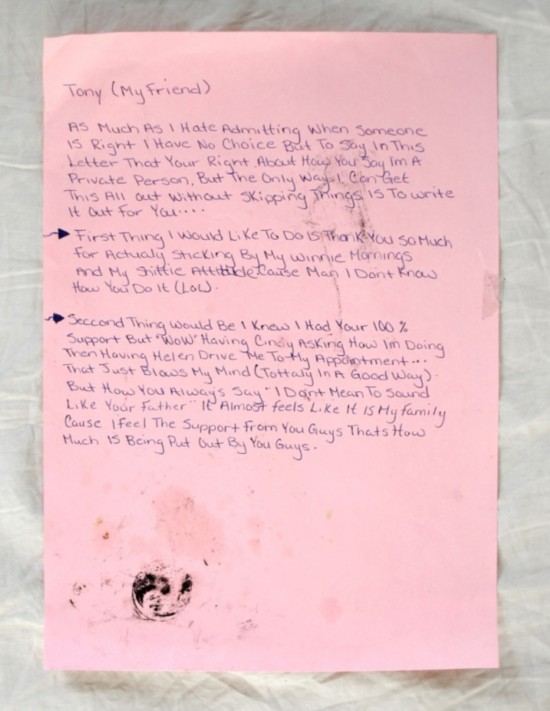 Tony (My Friend)
As Much As I Hate Admitting When Someone
Is Right I Have No Choice But To Say In This
Letter That Your Right About How You Say Im A
Private Person, But The Only Way I Can Get
This All out Without Skipping Things Is To write
It Out For You....
First Thing I Would Like To Do Is Thank You So Much
For Actualy Sticking By My Winnie Mornings
And My Shittie Attitude Cause Man I Dont Know
How You Do It (LoL).
Seccond Thing Would Be I Knew I Had Your 100 %
Support But "WoW" Having Cindy Asking How Im Doing
Then Having Helen Drive Me To My Appointment...
That Just Blows My Mind (Tottaly In A Good Way)
But How You Always Say "I Don't Mean To Sound
Like Your Father" It Almost feels Like It Is My family
Cause I Feel The Support From You Guys Thats How
Much Is Being Put Out By You Guys.